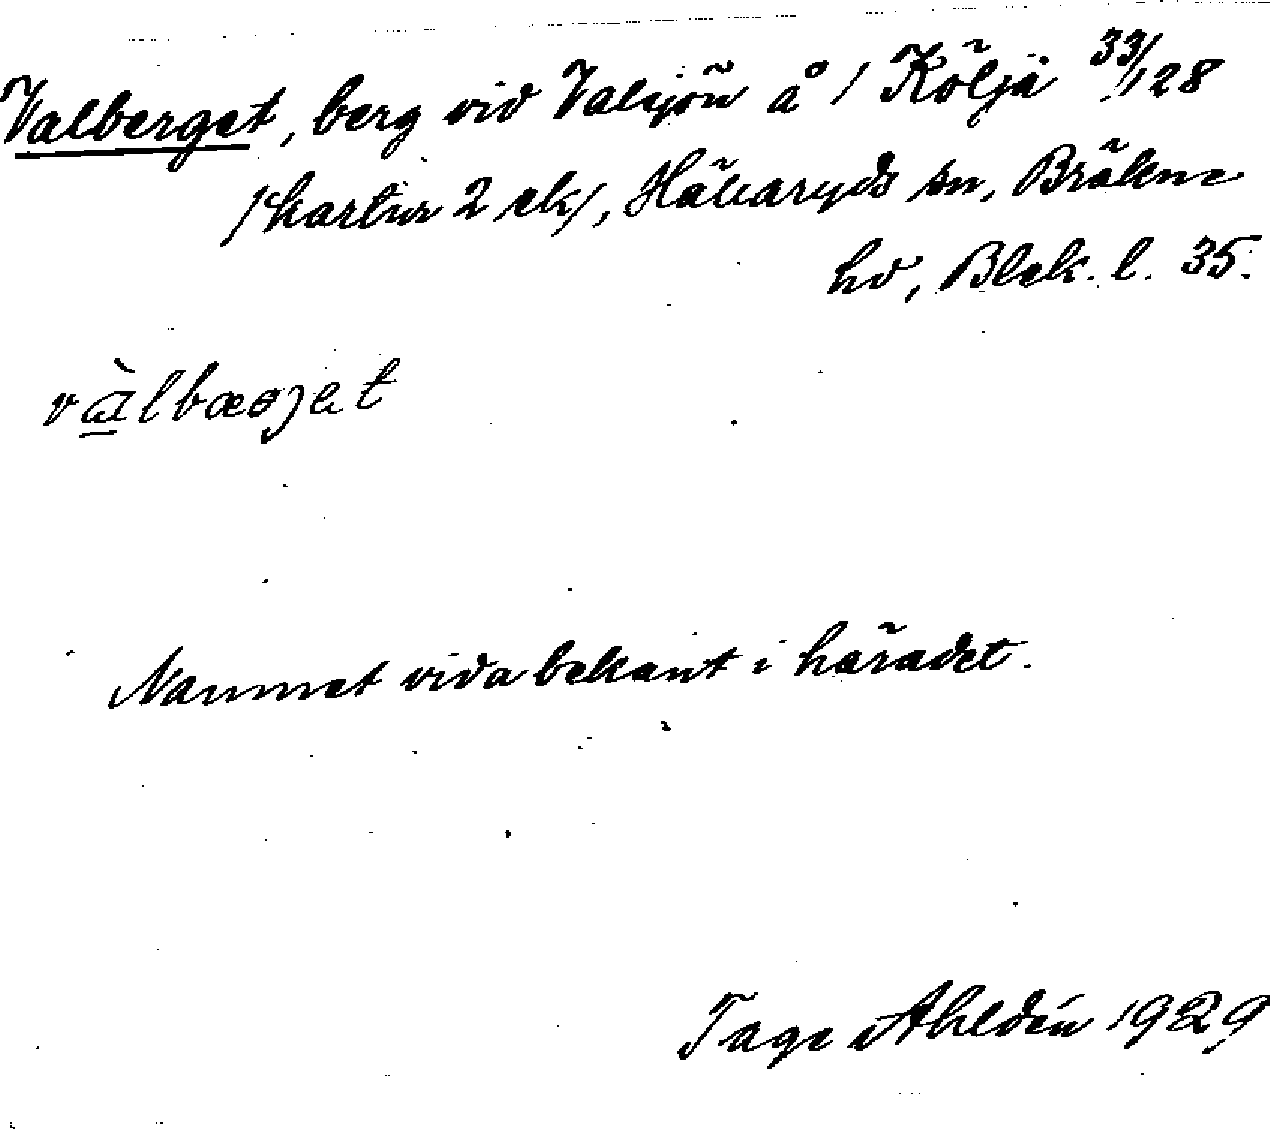 Valberget, berg vid Valsjön å 1 Kölja 33/128
/kartur 2 ek/, Hällaryds sn, Bräkne
hd, Blek. l. 35.
vàlbæɷjet
Namnet vida bekant i häradet.
Tage Ahldén 1929